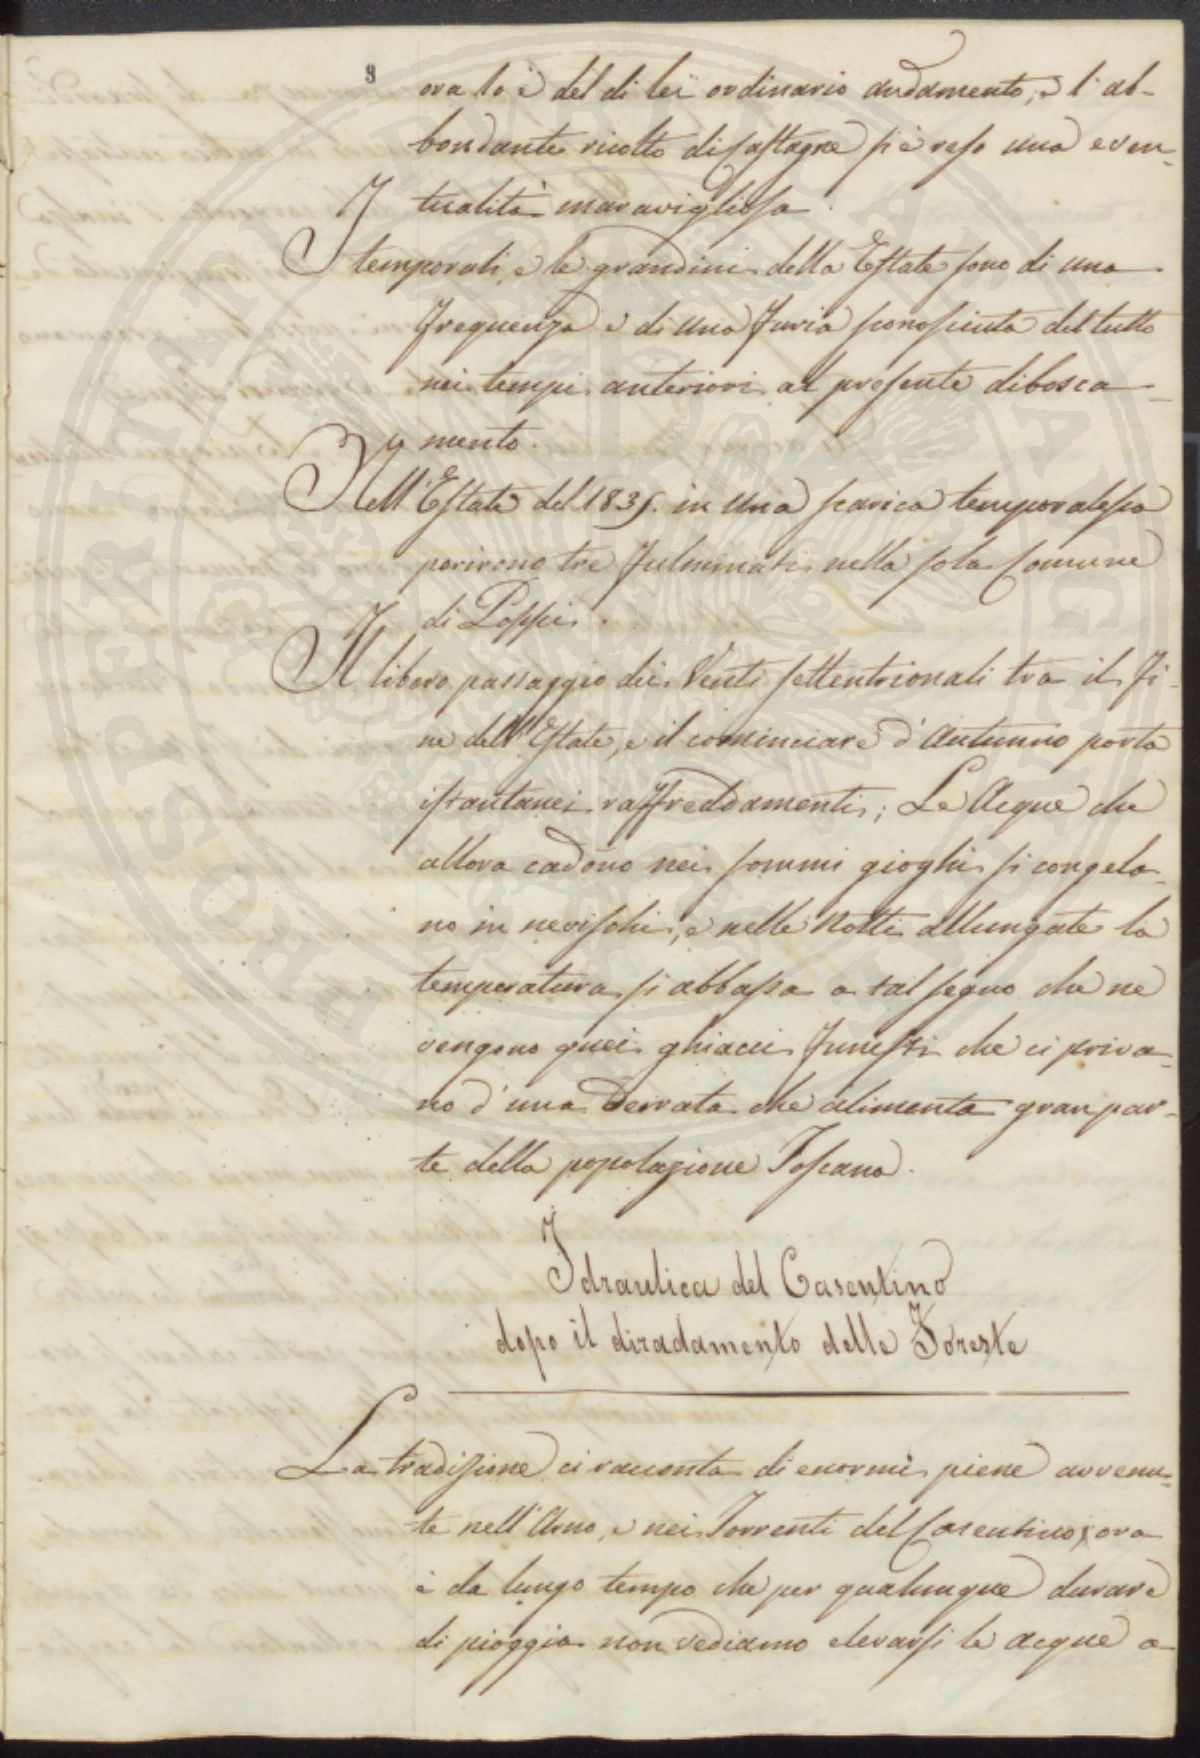 9
ora lo è del di lei ordinario andamento, e l'ab-
bondante ricolto di Castagne si è reso una even-
tualità maravigliosa.
I temporali, e le grandini della Estate sono di una
frequenza e di una furia sconosciuta del tutto
nei tempi anteriori al presente disbosca-
mento.
Nell'Estate del 1835. in una scarica temporalesca
perirono tre fulminati nella sola Comune
di Poppi.
Il libero passaggio dei Venti settentrionali tra il fi-
ne dell'Estate, e il cominciare d'Autunno porta
istantanei raffreddamenti; Le Acque che
allora cadono nei sommi gioghi si congela-
no in nevischi, e nelle Notti allungate la
temperatura si abbassa a tal segno che ne
vengono quei ghiacci funesti che ci priva-
no d'una Derrata che alimenta gran par-
te della popolazione Toscana.
Idraulica del Casentino
dopo il diradamento delle Foreste
La tradizione ci racconta di enormi piene avvenu-
te nell'Arno, e nei Torrenti del Casentino; ora
è da lungo tempo che per qualunque durare
di pioggia non vediamo elevarsi le acque a
POSTERITATI PUBLICAE